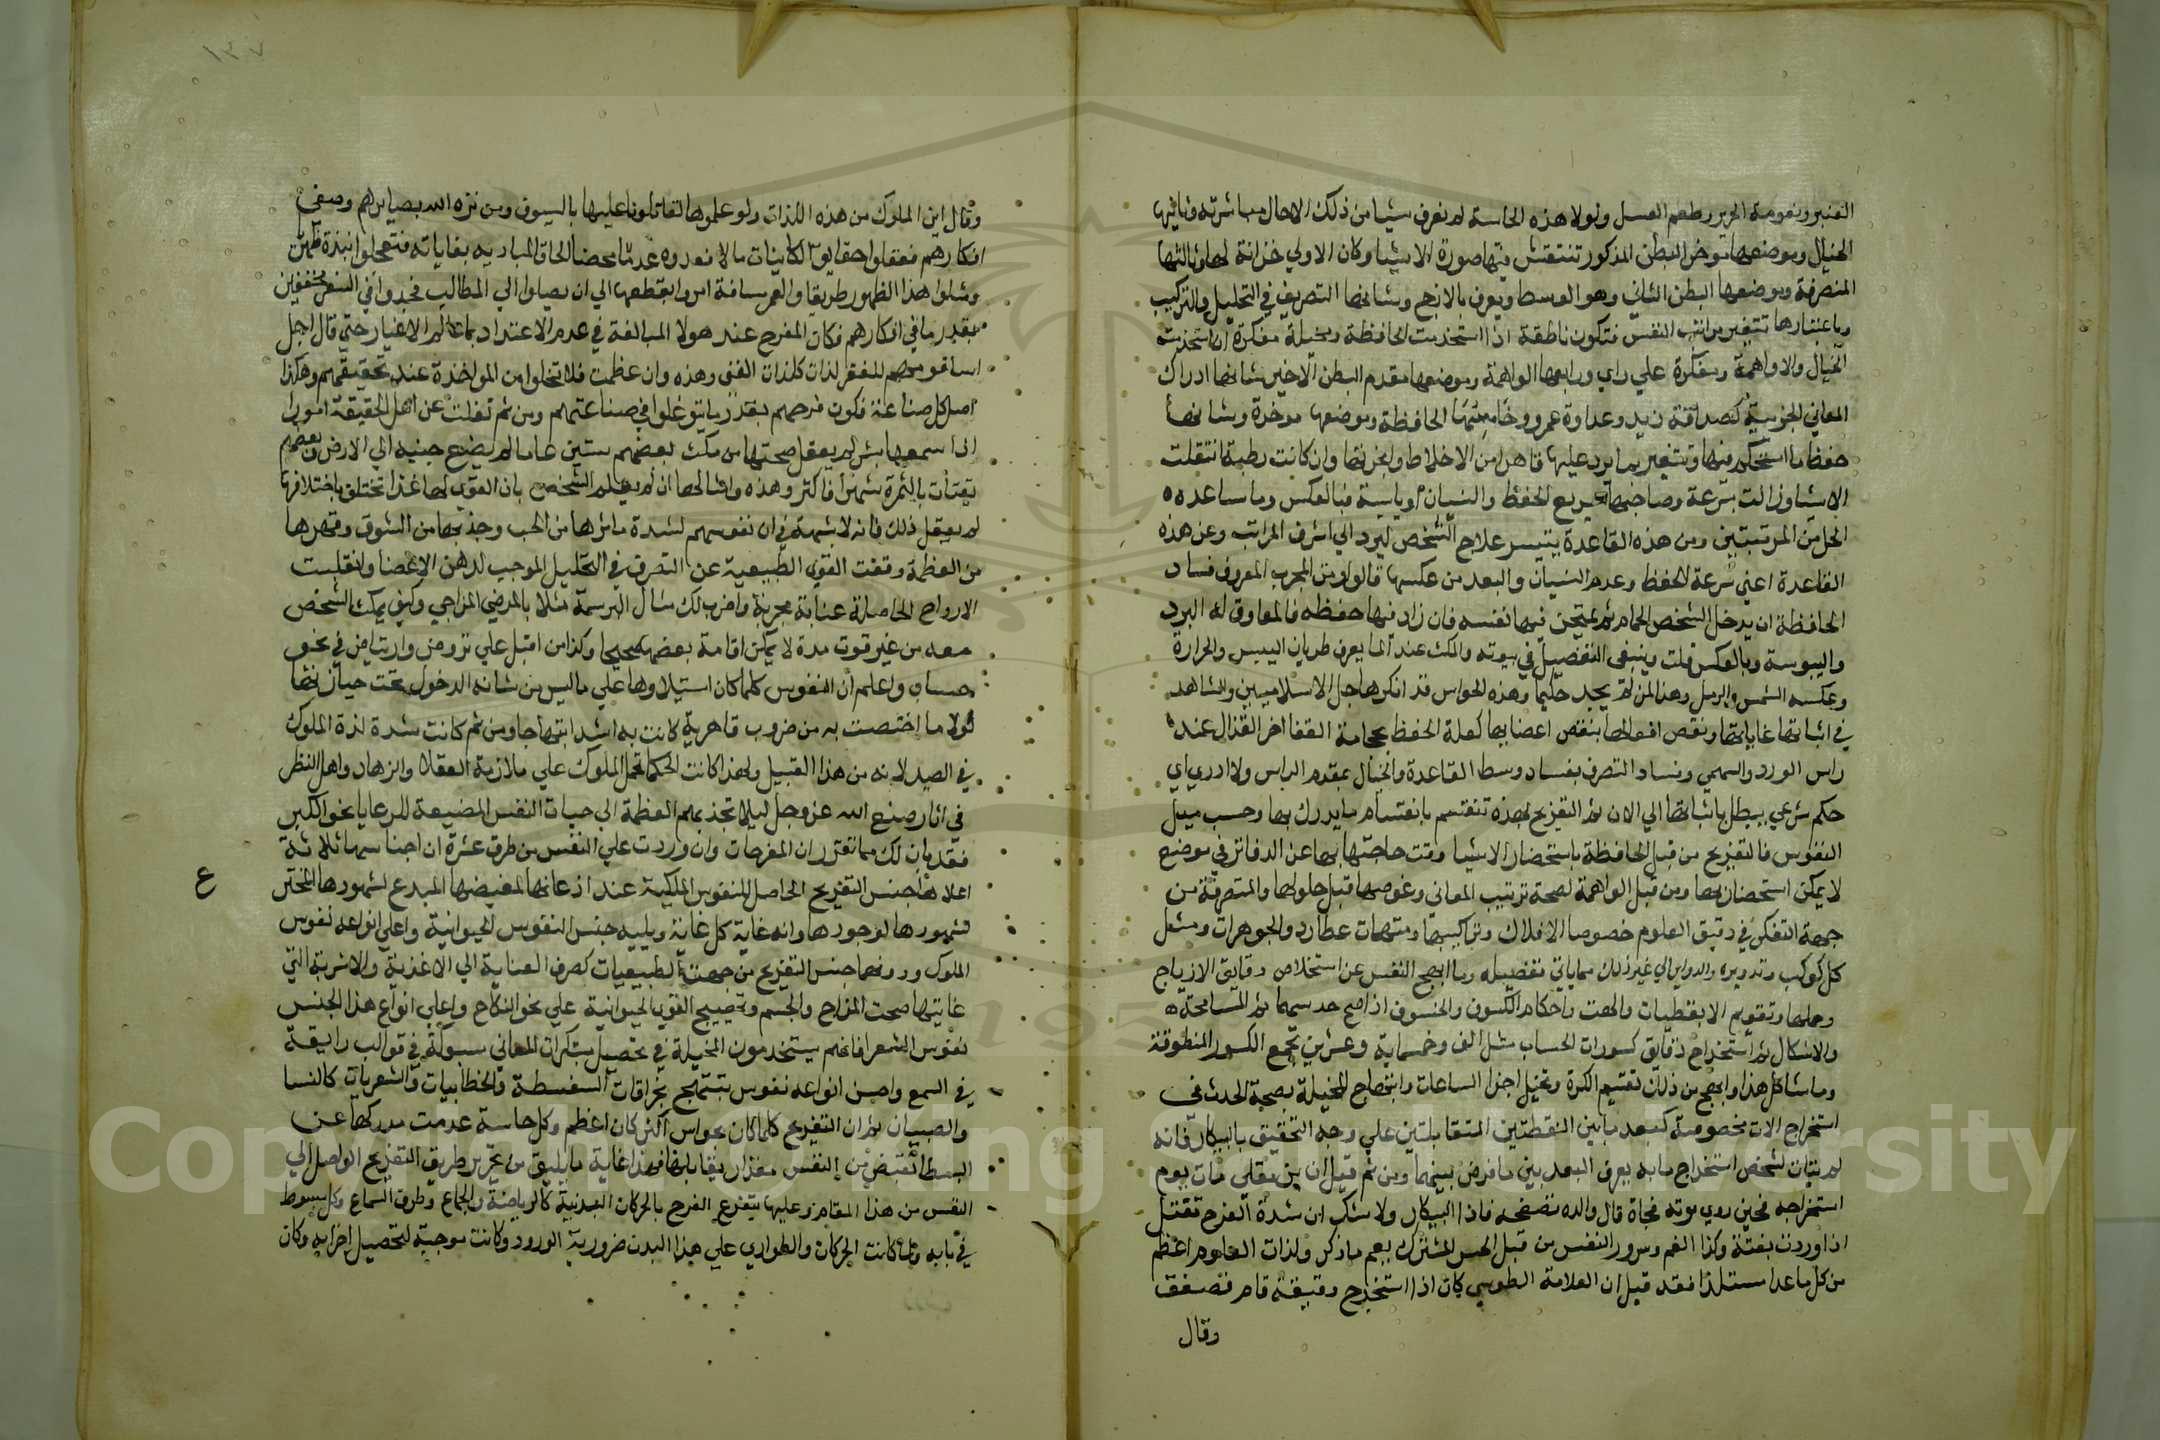 العنبر ونعومة الحرير وطعم العسل ولولا هذه الحاسة لم نعرف شيا من ذلك الا حال مباشرته وثانيها
الخيال وموضعها موخر البطن المذكور تنتقش فيها صورة الاشيا وكان الاولي خزانة لها وثالثها
المتصرفة وموضعها البطن الثاني وهو الوسط ويعرف بالازج وشانها التصريف في التحليل والتركيب
وباعتبارها تتغير مراتب النفس فتكون ناطقة اذا استخدمت الحافظة ومخيلة مفكرة ان استخدمت
الخيال والا واهمة ومفكرة علي راي ورابعها الواهمة وموضعها مقدم البطن الاخير شانها ادراك
المعاني الجزئية كصداقة زيد وعداوة عمرو وخامستها الحافظة وموضعها موخره وشانها
حفظ ما استحكم فيها وتتغير بما يرد عليها قاهرا من الاخلاط وابخرتها وان كانت رطبة انتقلت
الاشيا وزالت بسرعة وصاحبها سريع الحفظ والنسيان او يابسة فبالعكس وما ساعده
المحل من المرتبتين ومن هذه القاعدة يتيسر علاج الشخص ليرد الي اشرف المراتب وعن هذه
القاعدة اعني سرعة الحفظ وعدم النسيان والبعد من عكسها قالوا ومن المجرب المعروف فساد
الحافظة ان يدخل الشخص الحمام ثم يمتحن فيها نفسه فان زاد فيها حفظه فالمعاوق له البرد
واليبوسة وبالعكس قلت وينبغي التفصيل في بيوته والمكث عندنا انما يعرف طريان اليبس والحرارة
وعكسه الشمس والرمل وهذا لمن لم يجد حكيما وهذه الحواس قد انكرها جل الاسلاميين والمشاهد
في اثباتها غاياتها ونقص افعالها بنقص اعضايها كعلة الحفظ بحجامة القفا اخر القذال عند
راس الورد والسهمي وفساد التصرف بفساد وسط القاعدة والخيال بمقدم الراس ولا ادري اي
حكم شرعي يبطل باثباتها الي الان ثم التفريح بهذه تنقسم بانقسام ما يدرك بها وحسب ميل
النفوس فالتفريح من قبل الحافظة باستحضار الاشيا وقت حاجتها بها عن الدفاتر في موضع
لا يمكن استحضارها ومن قبل الواهمة لصحة ترتيب المعاني وغوصها قبل حلولها والمتصرفة من
جهة التفكر في دقيق العلوم خصوصا الافلاك وتراكيبها ومتممات عطارد والجوهرات وممثل
كل كوكب وتدويره والدواير الي غير ذلك مما ياتي تفصيله وما ابهج النفس عن استخلاص دقايق الازياج
وحلها وتقويم الابقطيات والبهت واحكام الكسوف والخسوف اذا صح حد سهما ثم المسامحة
والاشكال ثم استخراج دقايق كسورات الحساب مثل الف وخمسماية وعشرين تجمع الكسور المنطوقة
وما شاكل هذا وابهج من ذلك تقسيم الكرة وتخيل اجزا الساعات وابتهاج المخيلة بصحة الحدث في
استخراج الات مخصوصة كبعد ما بين النقطتين المتقابلتين علي وجه التحقيق بالبيكار فانه
لم يتات لشخص استخراج ما به يعرف البعد بين ما فرض بينهما ومن ثم قيل ان بن مقلي مات يوم
استخراجه فحين روي موته فجاة قال والده تصفحه فاذا البيكار ولا شك ان شدة الفرح تقتل
اذا وردت بغتة وكذا الغم وسرور النفس من قبل الحس المشترك يعم ما ذكر ولذات العلوم اعظم
من كل ما عدا مستلذا فقد قيل ان العلامة الطوسي كان اذا استخرج دقيقة قام فصفق
وقال
وقال اين الملوك من هذه اللذات ولو علموها لقاتلونا عليها بالسيوف ومن نزه الله بصايرهم وصفي
افكارهم فعقلوا حقايق الكاينات مالا فعدوه عدما محضا لالحاق المبادي به بغاياته فتعجلوا نبذه ظهريا
وشاوا هذا الظهور طريقا والعمر مسافة امروا بقطعها الي ان يصلوا الي المطالب فجدوا في السفر مخففين
بقدر ما في افكارهم فكان المفرح عند هولا المبالغة في عدم الاعتداد بما عالم الاغيار حتي قال اجل
اساقوسهم للفقر لذات كلذات الغني وهذه وان عظمت فلا تخلوا من المواخذة عند تحقيقهم وهكذا
اهل كل صناعة فكون فرحهم بقدر ما يتوغلوا في صناعتهم ومن ثم تفلت عن اهل الحقيقة امورا
اذا سمعها بشر لم يعقل صحتها من مكث بعضهم ستين عاما لم يضع جنبه الي الارض وبعضهم
يقتات بالتمرة شهرا فاكثر وهذه وامثالها ان لم يعلم الشخص بان القوي لها غذا تختلق باختلافها
لم يعقل ذلك فانه لا شبهة في ان نفوسهم لشدة ما سرها من الحب وجذبها من الشوق وقهرها
من العظمة وقفت القوي الطبيعية عن التصرف في التحليل الموجب لدهن الاعضا وانقلبت
الارواح الحاصلة عناية مجزية واضرب لك مثال البرسمة مثلا بالمرضي المزاجي وكيف يمكث الشخص
معه من غير قوت مدة لا يمكن اقامة بعضها صحيحا وكذا من اقبل علي تروض وارتياض في نحو
حساب واعلم ان النفوس كلما كان استيلاوها علي ما ليس من شانه الدخول تحت حيازتها
لولا ما اختصت به من ضروب قاهرية كانت به اشد ابتهاجا ومن ثم كانت شدة لذة الملوك
في الصيد لانه من هذا القبيل ولهذا كانت الحكما تحمل الملوك علي ملازمة العقلا والزهاد واهل النظر
في اثار صنع الله عز وجل ليلا تجذبهم العظمة الي حبيات النفس المضيعة للرعايا بنحو الكبر
فقد بان لك مما تقرر ان المفرحات وان وردت علي النفس من طرق عشرة ان اجناسها ثلاثة
اعلاها جنس التفريح الحاصل للنفوس الملكية عند اذعانها لمفيضها المبدع لشهودها المخترع
فشهودها لوجودها وانه غاية كل غاية ويليه جنس النفوس الحيوانية واعلي انواعه نفوس
الملوك ودونهما جنس التفريح من جهة الطبيعيات كصرف العناية الي الاغذية والاشربة التي
غايتها صحت المزاج والجسم وتهييج القوي الحيوانية علي نحو النكاح واعلي انواع هذا الجنس
نفوس الشعرا فانهم يستخدمون المخيلة في تحصيل مبتكرات المعاني مسبوكة في قوالب رايقة
في السمع واحسن انواعه نفوس تبتهج بخرافات السفسطة والخطابيات والشعريات كالنسا
والصبيان ثم ان التفريح كلما كان بحواس اكثر كان اعظم وكل حاسة عدمت مدركها عن
البسط انقبض من النفس مقدار يقابلها فهذا غاية ما يليق من تحرير طريق التفريح الواصل الي
النفس من هذا المقام وعليها يتفرع الفرح بالحركات البدنية كالرياضة والجماع وطرق السماع وكل مبسوط
في بابه ولما كانت الحركات والطواري علي هذا البدن ضرورية الورود وكانت موجبة لتحصيل اجزايه وكان
ع
Copyright © King Saud University
1957